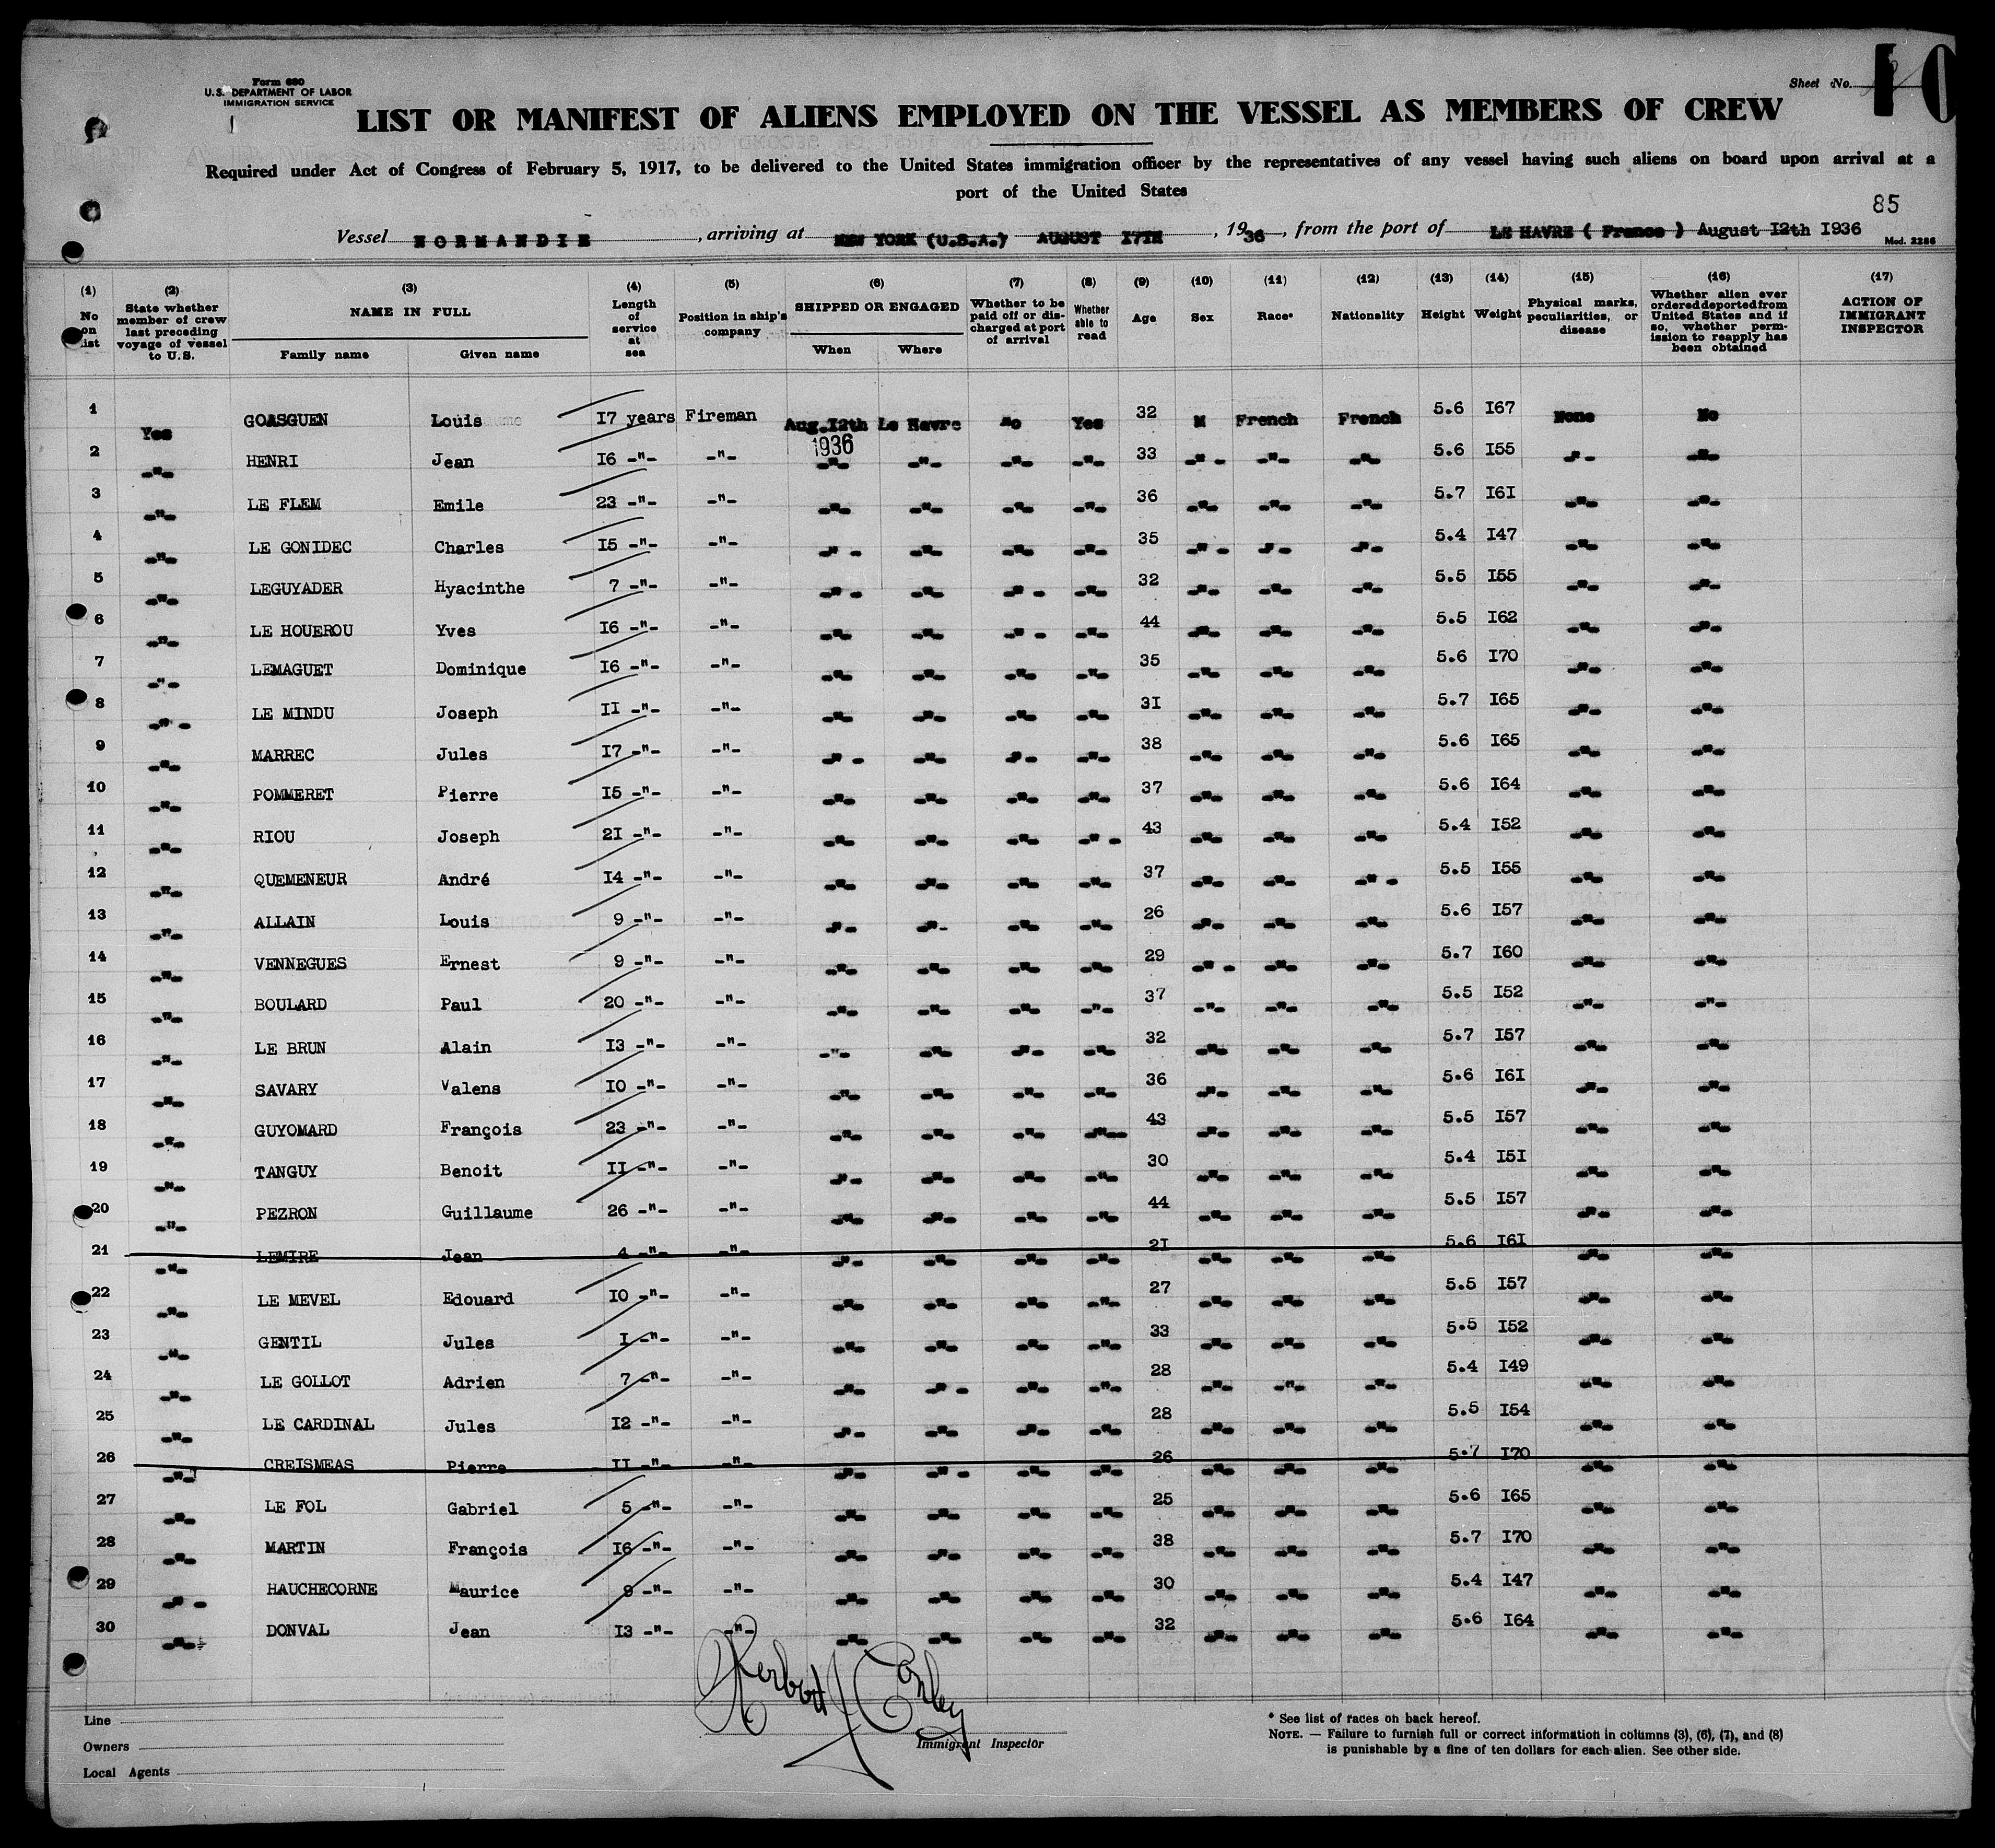 Form 680
U.S. DEPARTMENT OF LABOR
IMMIGRATION SERVICE
Sheet No. 10
LIST OR MANIFEST OF ALIENS EMPLOYED ON THE VESSEL AS MEMBERS OF CREW
Required under Act of Congress of February 5, 1917, to be delivered to the United States immigration officer by the representatives of any vessel having such aliens on board upon arrival at a
port of the United States
85
Vessel NORMANDIE, arriving at NEW YORK (U.S.A.) AUGUST I7TH, 1936, from the port of LE HAVRE ( France ) August I2th I936
Mod. 2286
(1) No on list (2) State whether member of crew last preceding voyage of vessel to U.S. (3) NAME IN FULL Family name Given name (4) Length of service at sea (5) Position in ship's company (6) SHIPPED OR ENGAGED When Where (7) Whether to be paid off or discharged at port of arrival (8) Whether able to read (9) Age (10) Sex (11) Race* (12) Nationality (13) Height (14) Weight (15) Physical marks, peculiarities, or disease (16) Whether alien ever ordered deported from United States and if so, whether permission to reapply has been obtained (17) ACTION OF IMMIGRANT INSPECTOR
1 Yes GOASGUEN Louis I7 years Fireman Aug.I2th 1936 Le Havre No Yes 32 M French French 5.6 I67 None No
2 -"- HENRI Jean I6 -"- -"- -"- -"- -"- -"- 33 -"- -"- -"- 5.6 I55 -"- -"-
3 -"- LE FLEM Emile 23 -"- -"- -"- -"- -"- -"- 36 -"- -"- -"- 5.7 I6I -"- -"-
4 -"- LE GONIDEC Charles I5 -"- -"- -"- -"- -"- -"- 35 -"- -"- -"- 5.4 I47 -"- -"-
5 -"- LEGUYADER Hyacinthe 7 -"- -"- -"- -"- -"- -"- 32 -"- -"- -"- 5.5 I55 -"- -"-
6 -"- LE HOUEROU Yves I6 -"- -"- -"- -"- -"- -"- 44 -"- -"- -"- 5.5 I62 -"- -"-
7 -"- LEMAGUET Dominique I6 -"- -"- -"- -"- -"- -"- 35 -"- -"- -"- 5.6 I70 -"- -"-
8 -"- LE MINDU Joseph II -"- -"- -"- -"- -"- -"- 3I -"- -"- -"- 5.7 I65 -"- -"-
9 -"- MARREC Jules I7 -"- -"- -"- -"- -"- -"- 38 -"- -"- -"- 5.6 I65 -"- -"-
10 -"- POMMERET Pierre I5 -"- -"- -"- -"- -"- -"- 37 -"- -"- -"- 5.6 I64 -"- -"-
11 -"- RIOU Joseph 2I -"- -"- -"- -"- -"- -"- 43 -"- -"- -"- 5.4 I52 -"- -"-
12 -"- QUEMENEUR André I4 -"- -"- -"- -"- -"- -"- 37 -"- -"- -"- 5.5 I55 -"- -"-
13 -"- ALLAIN Louis 9 -"- -"- -"- -"- -"- -"- 26 -"- -"- -"- 5.6 I57 -"- -"-
14 -"- VENNEGUES Ernest 9 -"- -"- -"- -"- -"- -"- 29 -"- -"- -"- 5.7 I60 -"- -"-
15 -"- BOULARD Paul 20 -"- -"- -"- -"- -"- -"- 37 -"- -"- -"- 5.5 I52 -"- -"-
16 -"- LE BRUN Alain I3 -"- -"- -"- -"- -"- -"- 32 -"- -"- -"- 5.7 I57 -"- -"-
17 -"- SAVARY Valens I0 -"- -"- -"- -"- -"- -"- 36 -"- -"- -"- 5.6 I6I -"- -"-
18 -"- GUYOMARD François 23 -"- -"- -"- -"- -"- -"- 43 -"- -"- -"- 5.5 I57 -"- -"-
19 -"- TANGUY Benoit II -"- -"- -"- -"- -"- -"- 30 -"- -"- -"- 5.4 I5I -"- -"-
20 -"- PEZRON Guillaume 26 -"- -"- -"- -"- -"- -"- 44 -"- -"- -"- 5.5 I57 -"- -"-
21 -"- LEMIRE Jean 4 -"- -"- -"- -"- -"- -"- 2I -"- -"- -"- 5.6 I6I -"- -"-
22 -"- LE MEVEL Edouard I0 -"- -"- -"- -"- -"- -"- 27 -"- -"- -"- 5.5 I57 -"- -"-
23 -"- GENTIL Jules I -"- -"- -"- -"- -"- -"- 33 -"- -"- -"- 5.5 I52 -"- -"-
24 -"- LE GOLLOT Adrien 7 -"- -"- -"- -"- -"- -"- 28 -"- -"- -"- 5.4 I49 -"- -"-
25 -"- LE CARDINAL Jules I2 -"- -"- -"- -"- -"- -"- 28 -"- -"- -"- 5.5 I54 -"- -"-
26 -"- CREISMEAS Pierre II -"- -"- -"- -"- -"- -"- 26 -"- -"- -"- 5.7 I70 -"- -"-
27 -"- LE FOL Gabriel 5 -"- -"- -"- -"- -"- -"- 25 -"- -"- -"- 5.6 I65 -"- -"-
28 -"- MARTIN François I6 -"- -"- -"- -"- -"- -"- 38 -"- -"- -"- 5.7 I70 -"- -"-
29 -"- HAUCHECORNE Maurice 9 -"- -"- -"- -"- -"- -"- 30 -"- -"- -"- 5.4 I47 -"- -"-
30 -"- DONVAL Jean I3 -"- -"- -"- -"- -"- -"- 32 -"- -"- -"- 5.6 I64 -"- -"-
Herbert J Conley
Immigrant Inspector
Line
Owners
Local Agents
* See list of races on back hereof.
NOTE. — Failure to furnish full or correct information in columns (3), (6), (7), and (8)
is punishable by a fine of ten dollars for each alien. See other side.